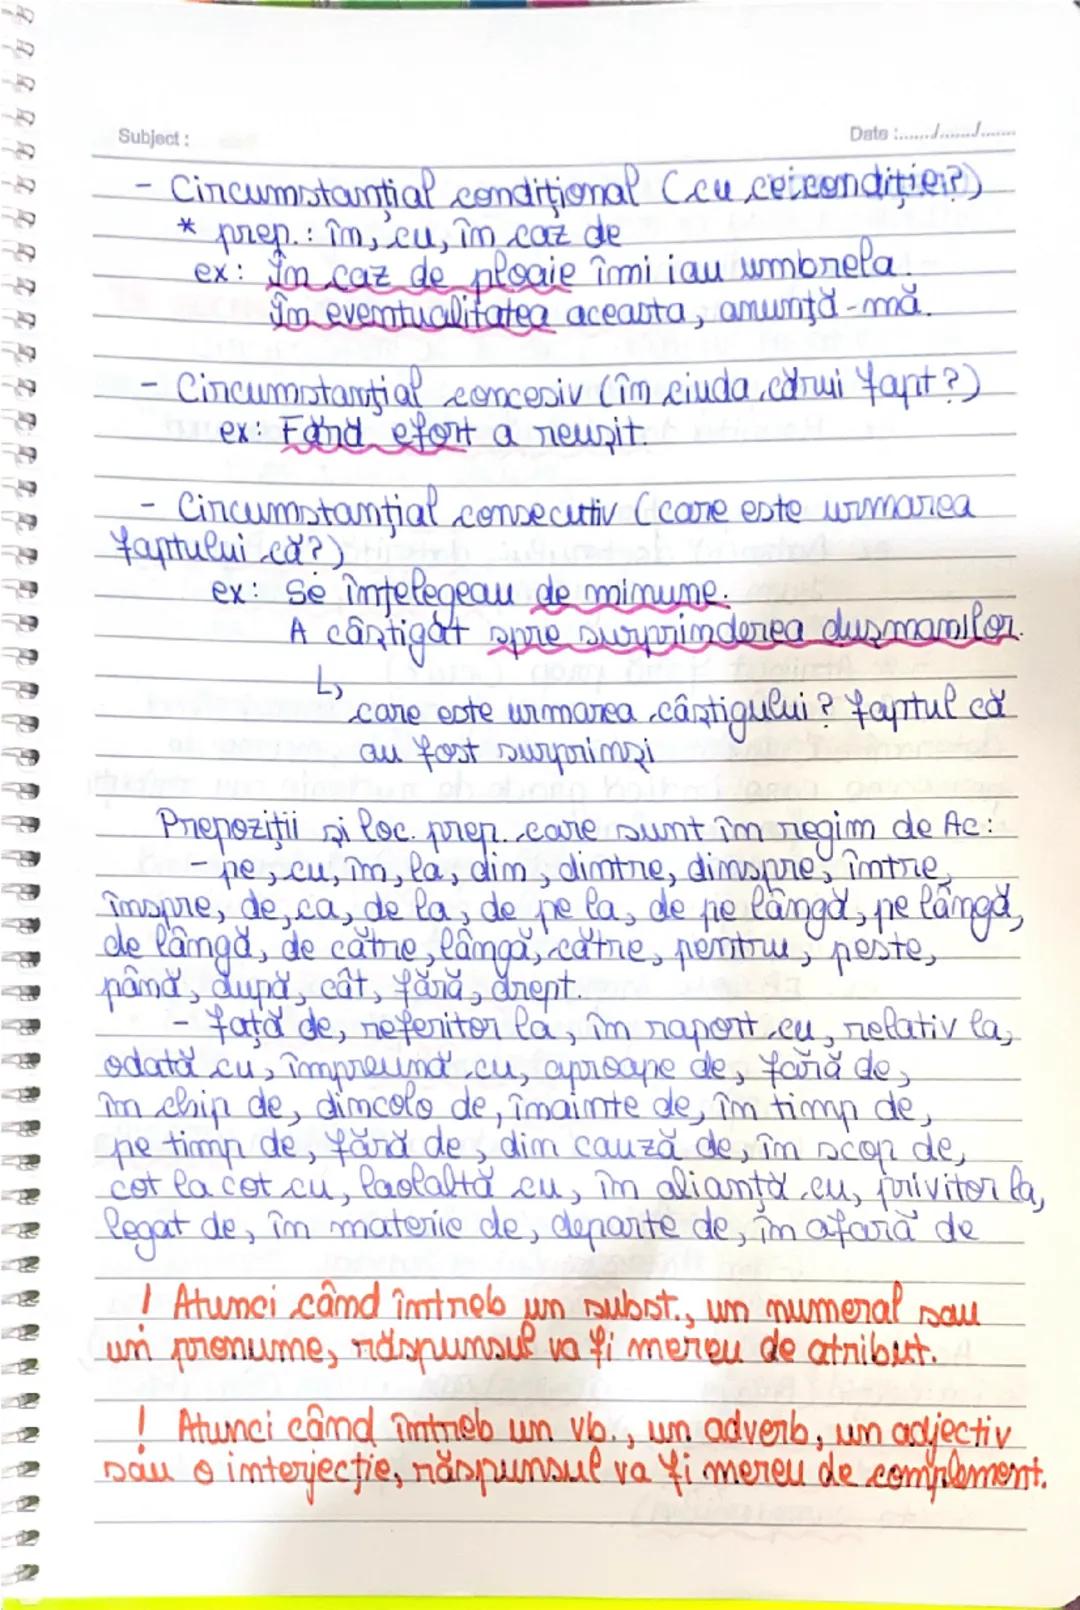 Subject :
Date :....../....../......
- Circumstanțial condițional (cu ce condiție?)
* prep.: în, cu, în caz de
ex: În caz de ploaie îmi iau umbrela.
În eventualitatea aceasta, anunță-mă.
- Circumstanțial concesiv (în ciuda cărui fapt?)
ex: Fără efort a reușit.
- Circumstanțial consecutiv (care este urmarea
faptului că?)
ex: Se înțelegeau de minune.
A câștigat spre surprinderea dușmanilor.
↳
care este urmarea câștigului? faptul că
au fost surprinși
Prepoziții și loc. prep. care sunt în regim de Ac:
- pe, cu, în, la, din, dintre, dinspre, între,
înspre, de, ca, de la, de pe la, de pe lângă, pe lângă,
de lângă, de către, lângă, către, pentru, peste,
până, după, cât, fără, drept.
- față de, referitor la, în raport cu, relativ la,
odată cu, împreună cu, aproape de, fără de,
în chip de, dincolo de, înainte de, în timp de,
pe timp de, fără de, din cauză de, în scop de,
cot la cot cu, laolaltă cu, în alianță cu, privitor la,
legat de, în materie de, departe de, în afară de
! Atunci când întreb un subst., un numeral sau
un pronume, răspunsul va fi mereu de atribut.
! Atunci când întreb un vb., un adverb, un adjectiv
sau o interjecție, răspunsul va fi mereu de complement.